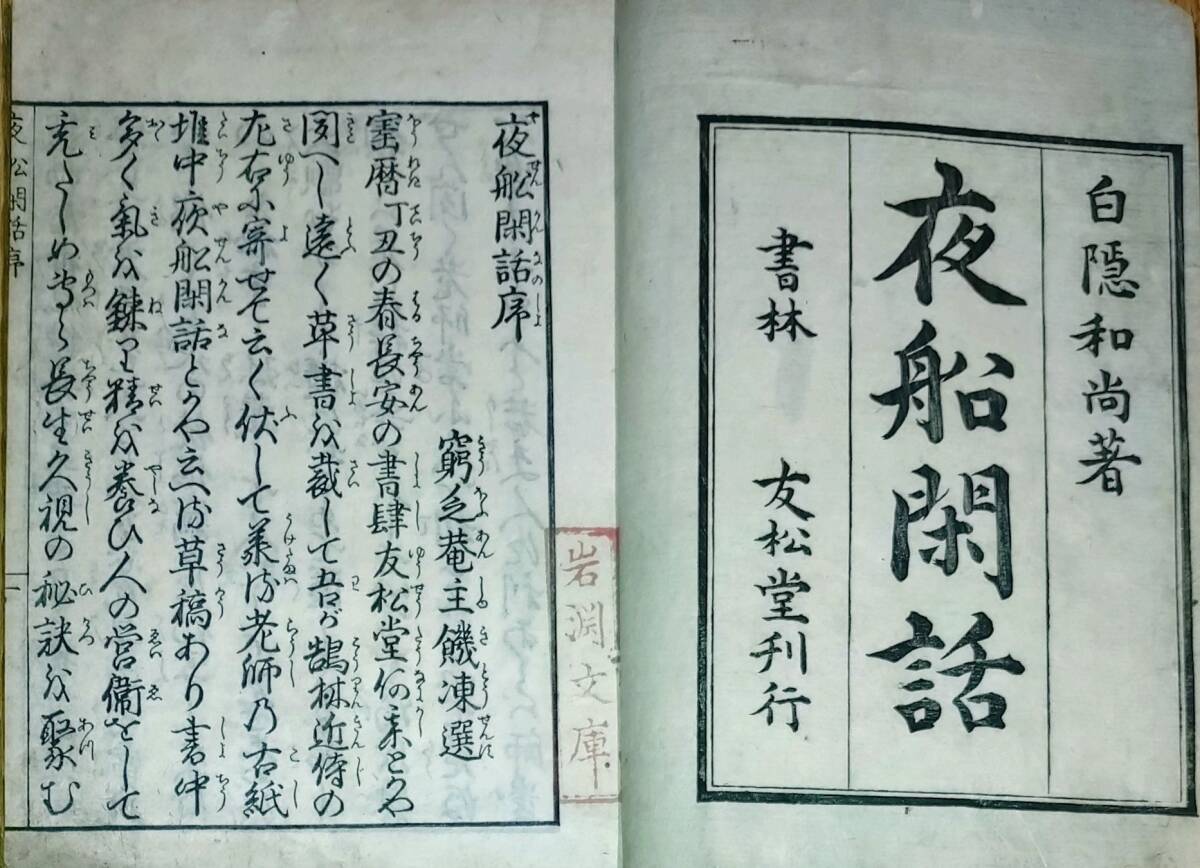 白隠和尚著
夜船閑話
書林 友松堂刊行
岩淵文庫
夜舩閑話序
窮乏菴主饑凍選
宝暦丁丑の春長安の書肆友松堂何某とかや
聞へし遠く草書を裁して吾が鵠林近侍の
左右に寄せて云く伏して承る老師乃古紙
堆中夜舩閑話とかや云へる草稿あり書中
多く氣を錬り精を養ひ人の営衞をして
充たしめ専ら長生久視の秘訣を聚む
夜舩閑話序
一